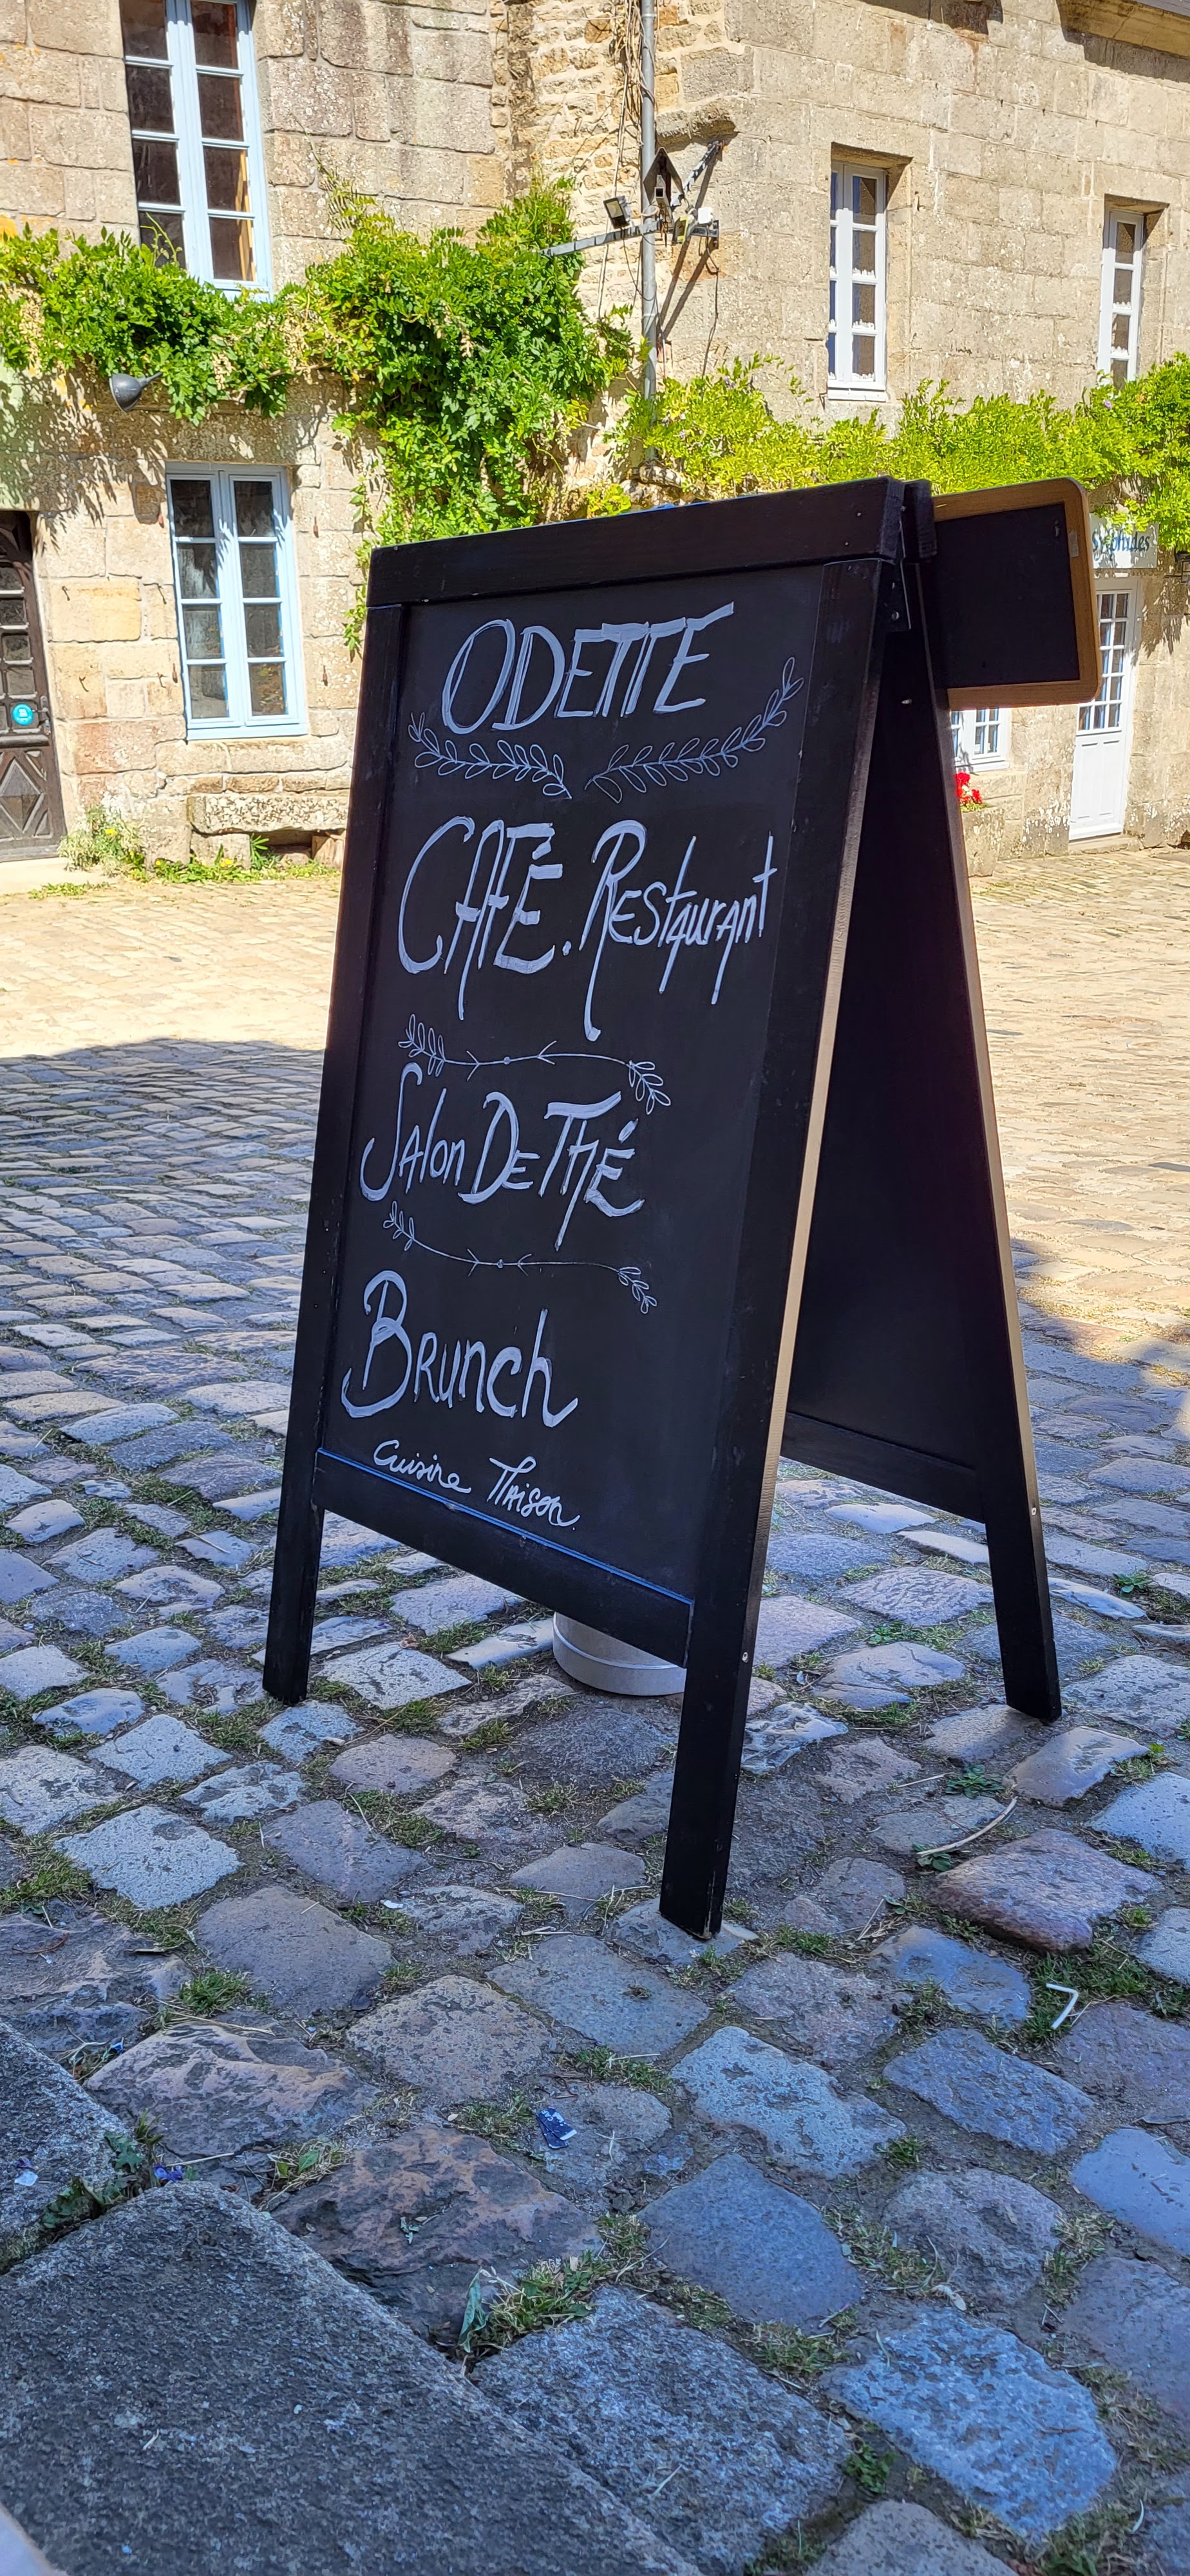 ODETTE
CAFÉ. Restaurant
Salon De Thé
Brunch
Cuisine Maison